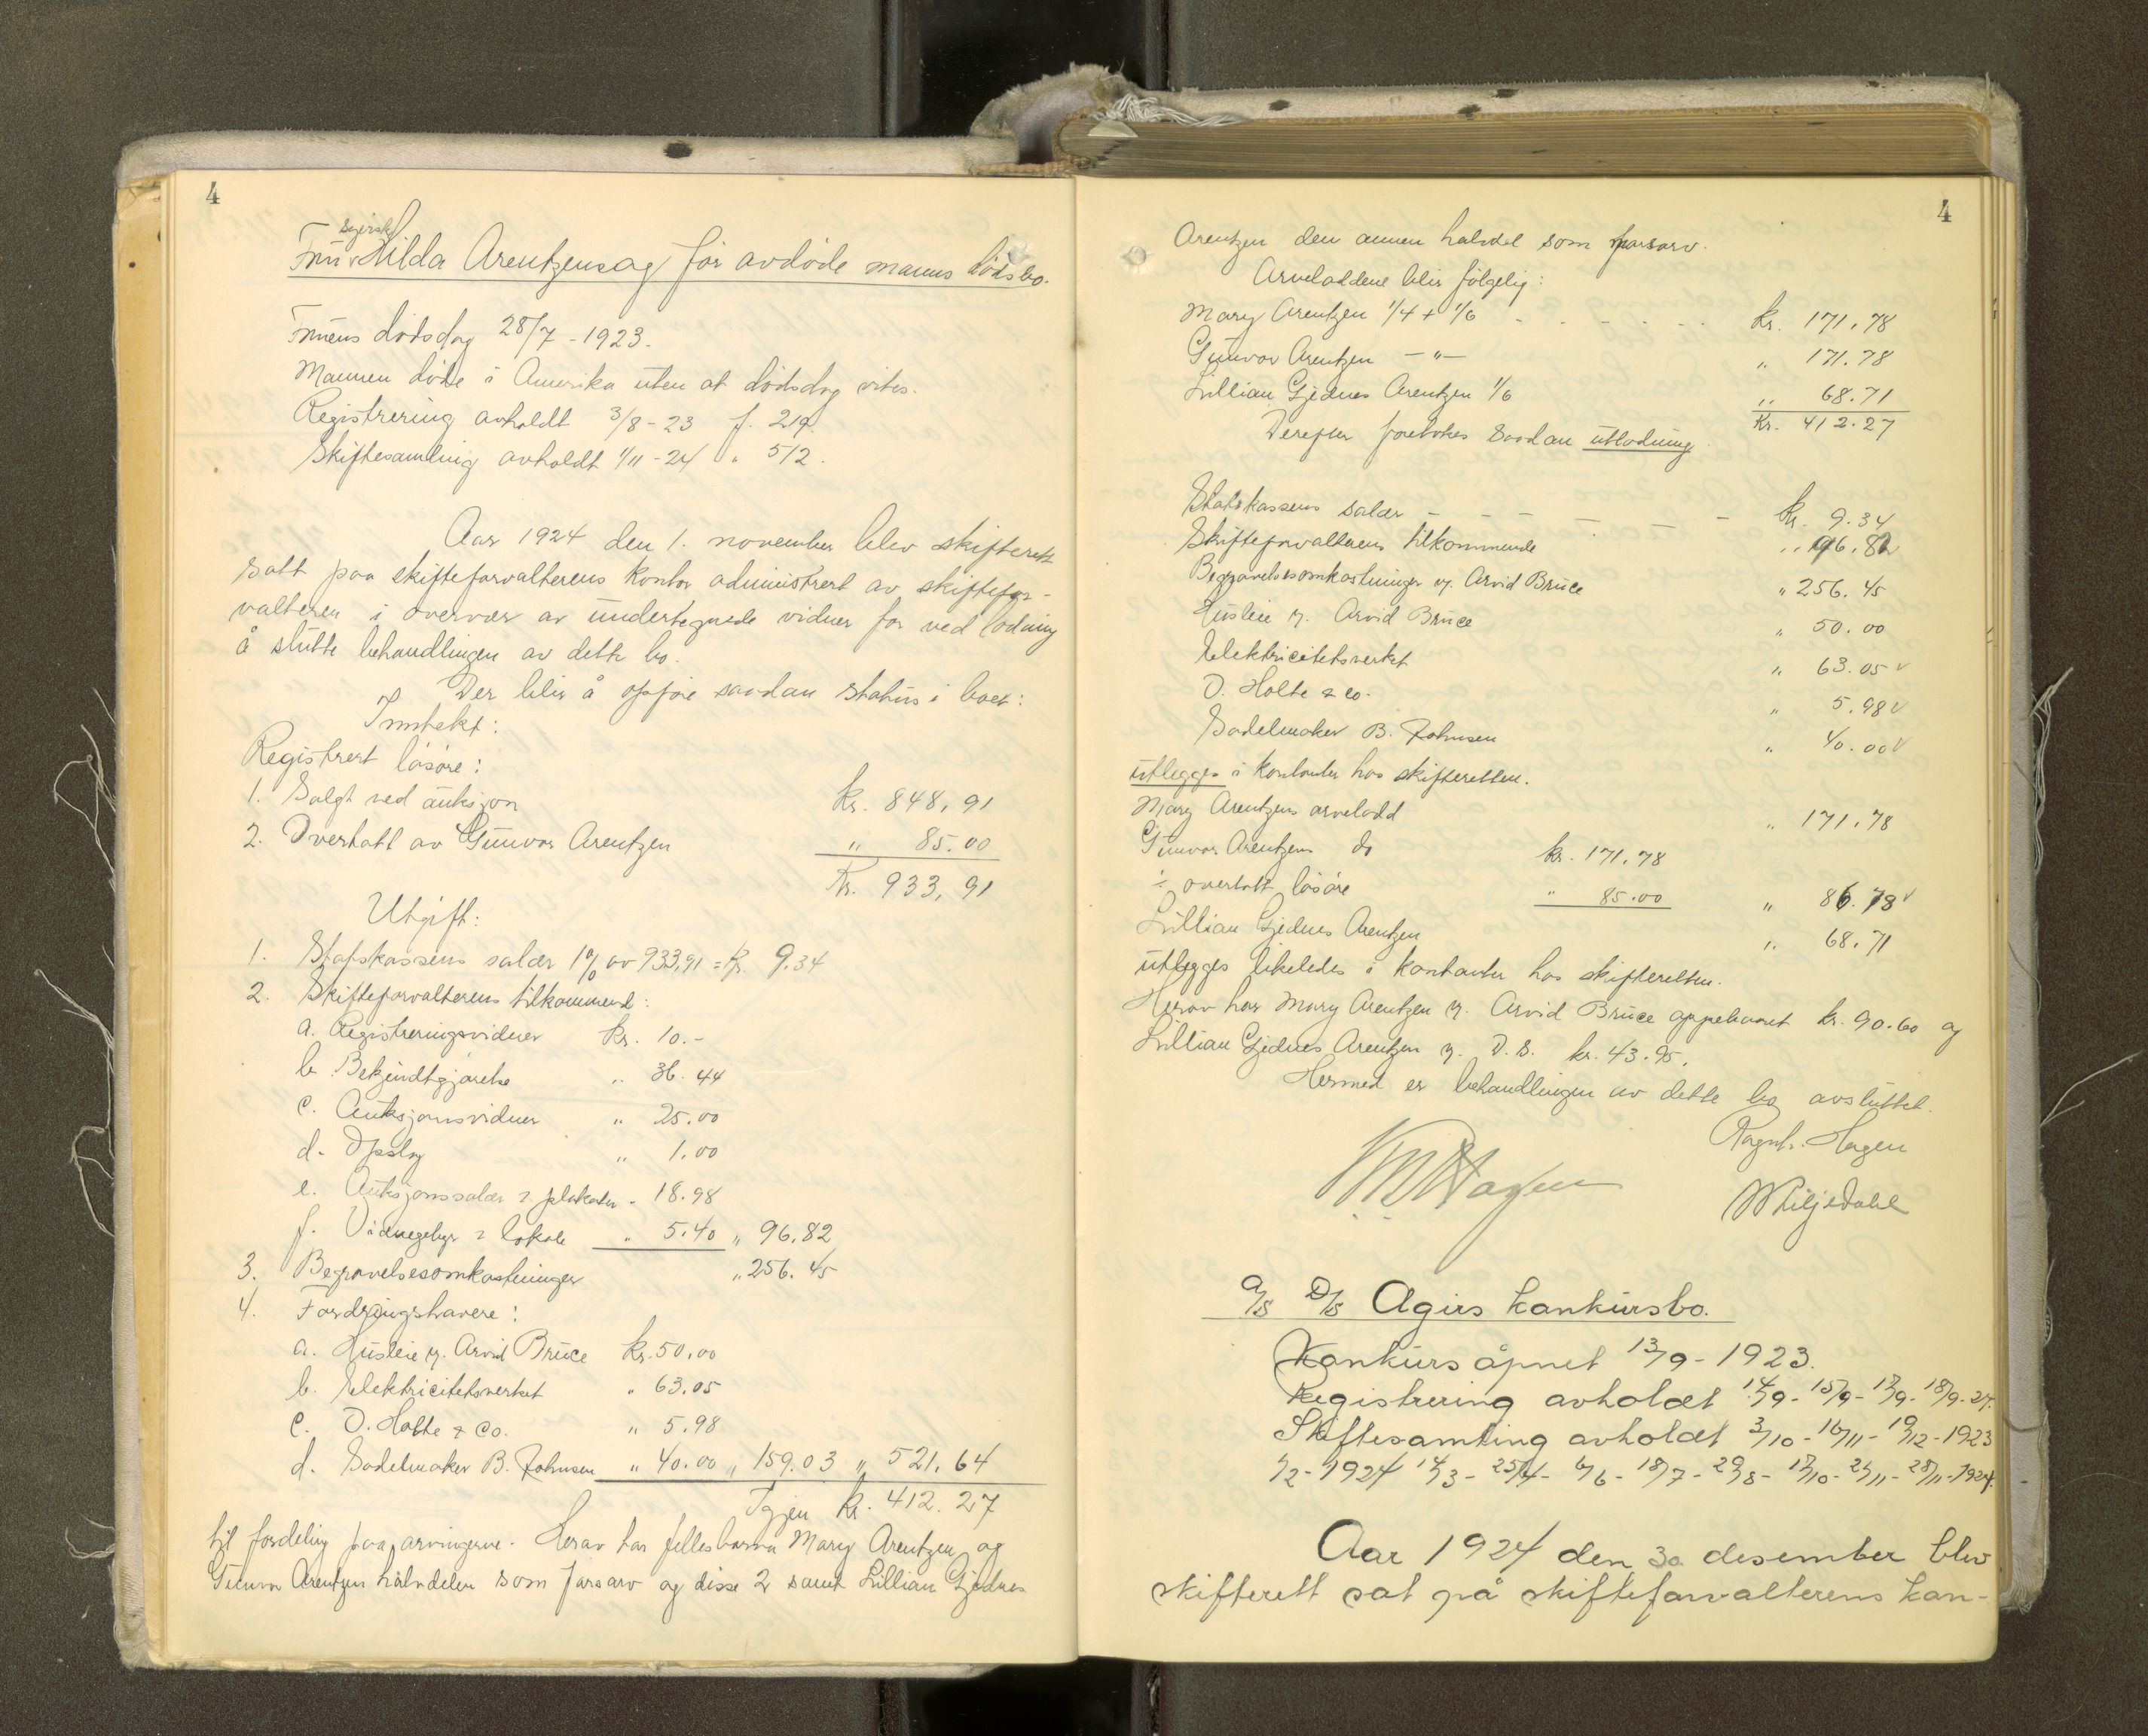 4
Frue Hilda Arentzens og før avdøde manns dødsbo.
Fruens dødsdag 28/7 - 1923.
Mannen døde i Amerika uten at dødsdag vites.
Registrering avholdt 3/8 - 23 f. 219.
Skiftesamling avholdt 1/11 - 24 " 512.
Aar 1924 den 1. november blev skifterett
satt paa skifteforvalterens kontor administrert av skiftefor-
valteren i overvær av undertegnede vidner for ved lodning
å slutte behandlingen av dette bo.
Der blir å opføre saadan status i boet:
Inntekt:
Registrert løsøre:
1. Solgt ved auksjon kr. 848,91
2. Overtatt av Gunvor Arentzen " 85.00
Kr. 933,91
Utgift:
1. Statskassens salær 1% av 933,91 = Kr. 9.34
2. Skifteforvalterens tilkommende:
a. Registreringsvidner Kr. 10.-
b. Bekjendtgjørelse " 36.44
c. Auksjonsvidner " 25.00
d. Opslag " 1.00
e. Auksjonssalær & plakater " 18.98
f. Vidnegebyr & lokale " 5.40 " 96.82
3. Begravelsesomkostninger " 256.45
4. Fordringshavere:
a. Husleie v. Arvid Bruce Kr. 50.00
b. Elektricitetsverket " 63.05
c. O. Holte & Co. " 5.98
d. Sadelmaker B. Johnsen " 40.00 " 159.03 " 521.64
Igjen Kr. 412.27
til fordeling paa arvingerne. Herav har fellesbarna Mary Arentzen og
Gunvor Arentzen halvdelen som farsarv og disse 2 samt Lillian Gjednes
4
Arentzen den annen halvdel som morsarv.
Arveloddene blir følgelig:
Mary Arentzen 1/4 + 1/6 - - - - - kr. 171.78
Gunvor Arentzen - " - " 171.78
Lillian Gjednes Arentzen 1/6 " 68.71
Kr. 412.27
Derefter foretokes saadan utlodning
Statskassens salær - - - - - - kr. 9.34
Skifteforvalterens tilkommende " 96.82
Begravelsesomkostninger v. Arvid Bruce " 256.45
Husleie v. Arvid Bruce " 50.00
Elektricitetsverket " 63.05 v
O. Holte & Co. " 5.98 v
Sadelmaker B. Johnsen " 40.00 v
utlegges i kontanter hos skifteretten.
Mary Arentzens arvelodd " 171.78
Gunvor Arentzens do kr. 171.78
÷ overtatt løsøre " 85.00 " 86.78 v
Lillian Gjednes Arentzen " 68.71
utlegges likeledes i kontanter hos skifteretten.
Herav har Mary Arentzen v. Arvid Bruce oppebaaret kr. 90.60 og
Lillian Gjednes Arentzen v. D.S. kr. 43.95.
Hermed er behandlingen av dette bo avsluttet.
Ragnh. Hagen
A/S D/S Ægirs konkursbo.
Konkurs åpnet 13/9 - 1923.
Registrering avholdt 14/9 - 15/9 - 17/9 - 18/9 - 27.
Skiftesamling avholdt 3/10 - 16/11 - 19/12 - 1923
1/2 - 1924 14/3 - 25/4 - 6/6 - 18/7 - 29/8 - 17/10 - 21/11 - 28/11 - 1924.
Aar 1924 den 30 desember blev
skifterett sat på skifteforvalterens kon-